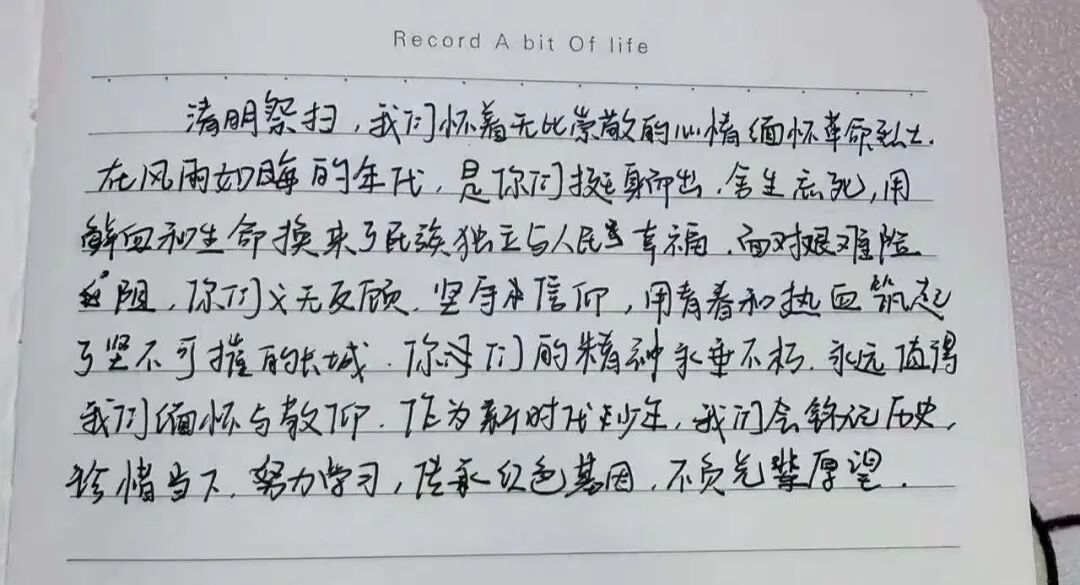 Record A bit Of life
清明祭扫，我们怀着无比崇敬的心情缅怀革命烈士.
在风雨如晦的年代，是你们挺身而出，舍生忘死，用
鲜血和生命换来了民族独立与人民幸福．面对艰难险
阻，你们义无反顾．坚守信仰，用青春和热血筑起
了坚不可摧的长城．你们的精神永垂不朽．永远值得
我们缅怀与敬仰．作为新时代少年，我们会铭记历史，
珍惜当下．努力学习，传承红色基因．不负先辈厚望．